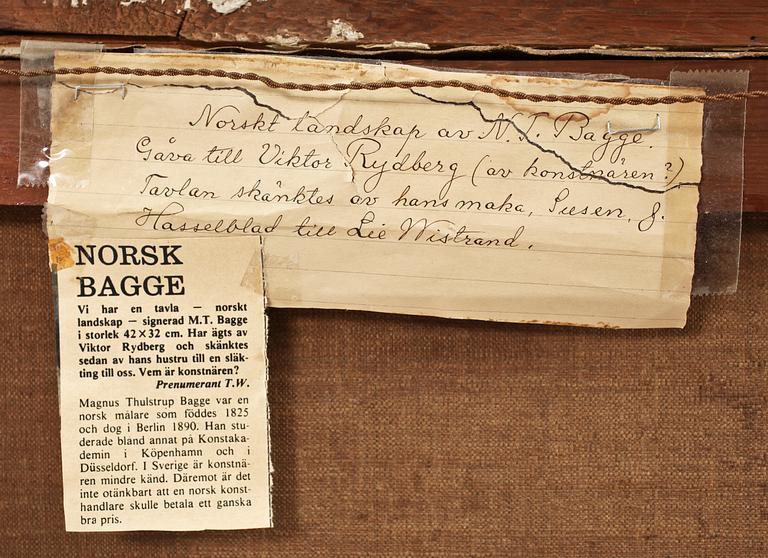 Norskt landskap av N.T. Bagge.
Gåva till Viktor Rydberg (av konstnären?)
Tavlan skänktes av hans maka, Susen, f.
Hasselblad till Lie Wistrand.
NORSK
BAGGE
Vi har en tavla — norskt
landskap — signerad M.T. Bagge
i storlek 42×32 cm. Har ägts av
Viktor Rydberg och skänktes
sedan av hans hustru till en släk-
ting till oss. Vem är konstnären?
Prenumerant T.W.
Magnus Thulstrup Bagge var en
norsk målare som föddes 1825
och dog i Berlin 1890. Han stu-
derade bland annat på Konstaka-
demin i Köpenhamn och i
Düsseldorf. I Sverige är konstnä-
ren mindre känd. Däremot är det
inte otänkbart att en norsk konst-
handlare skulle betala ett ganska
bra pris.